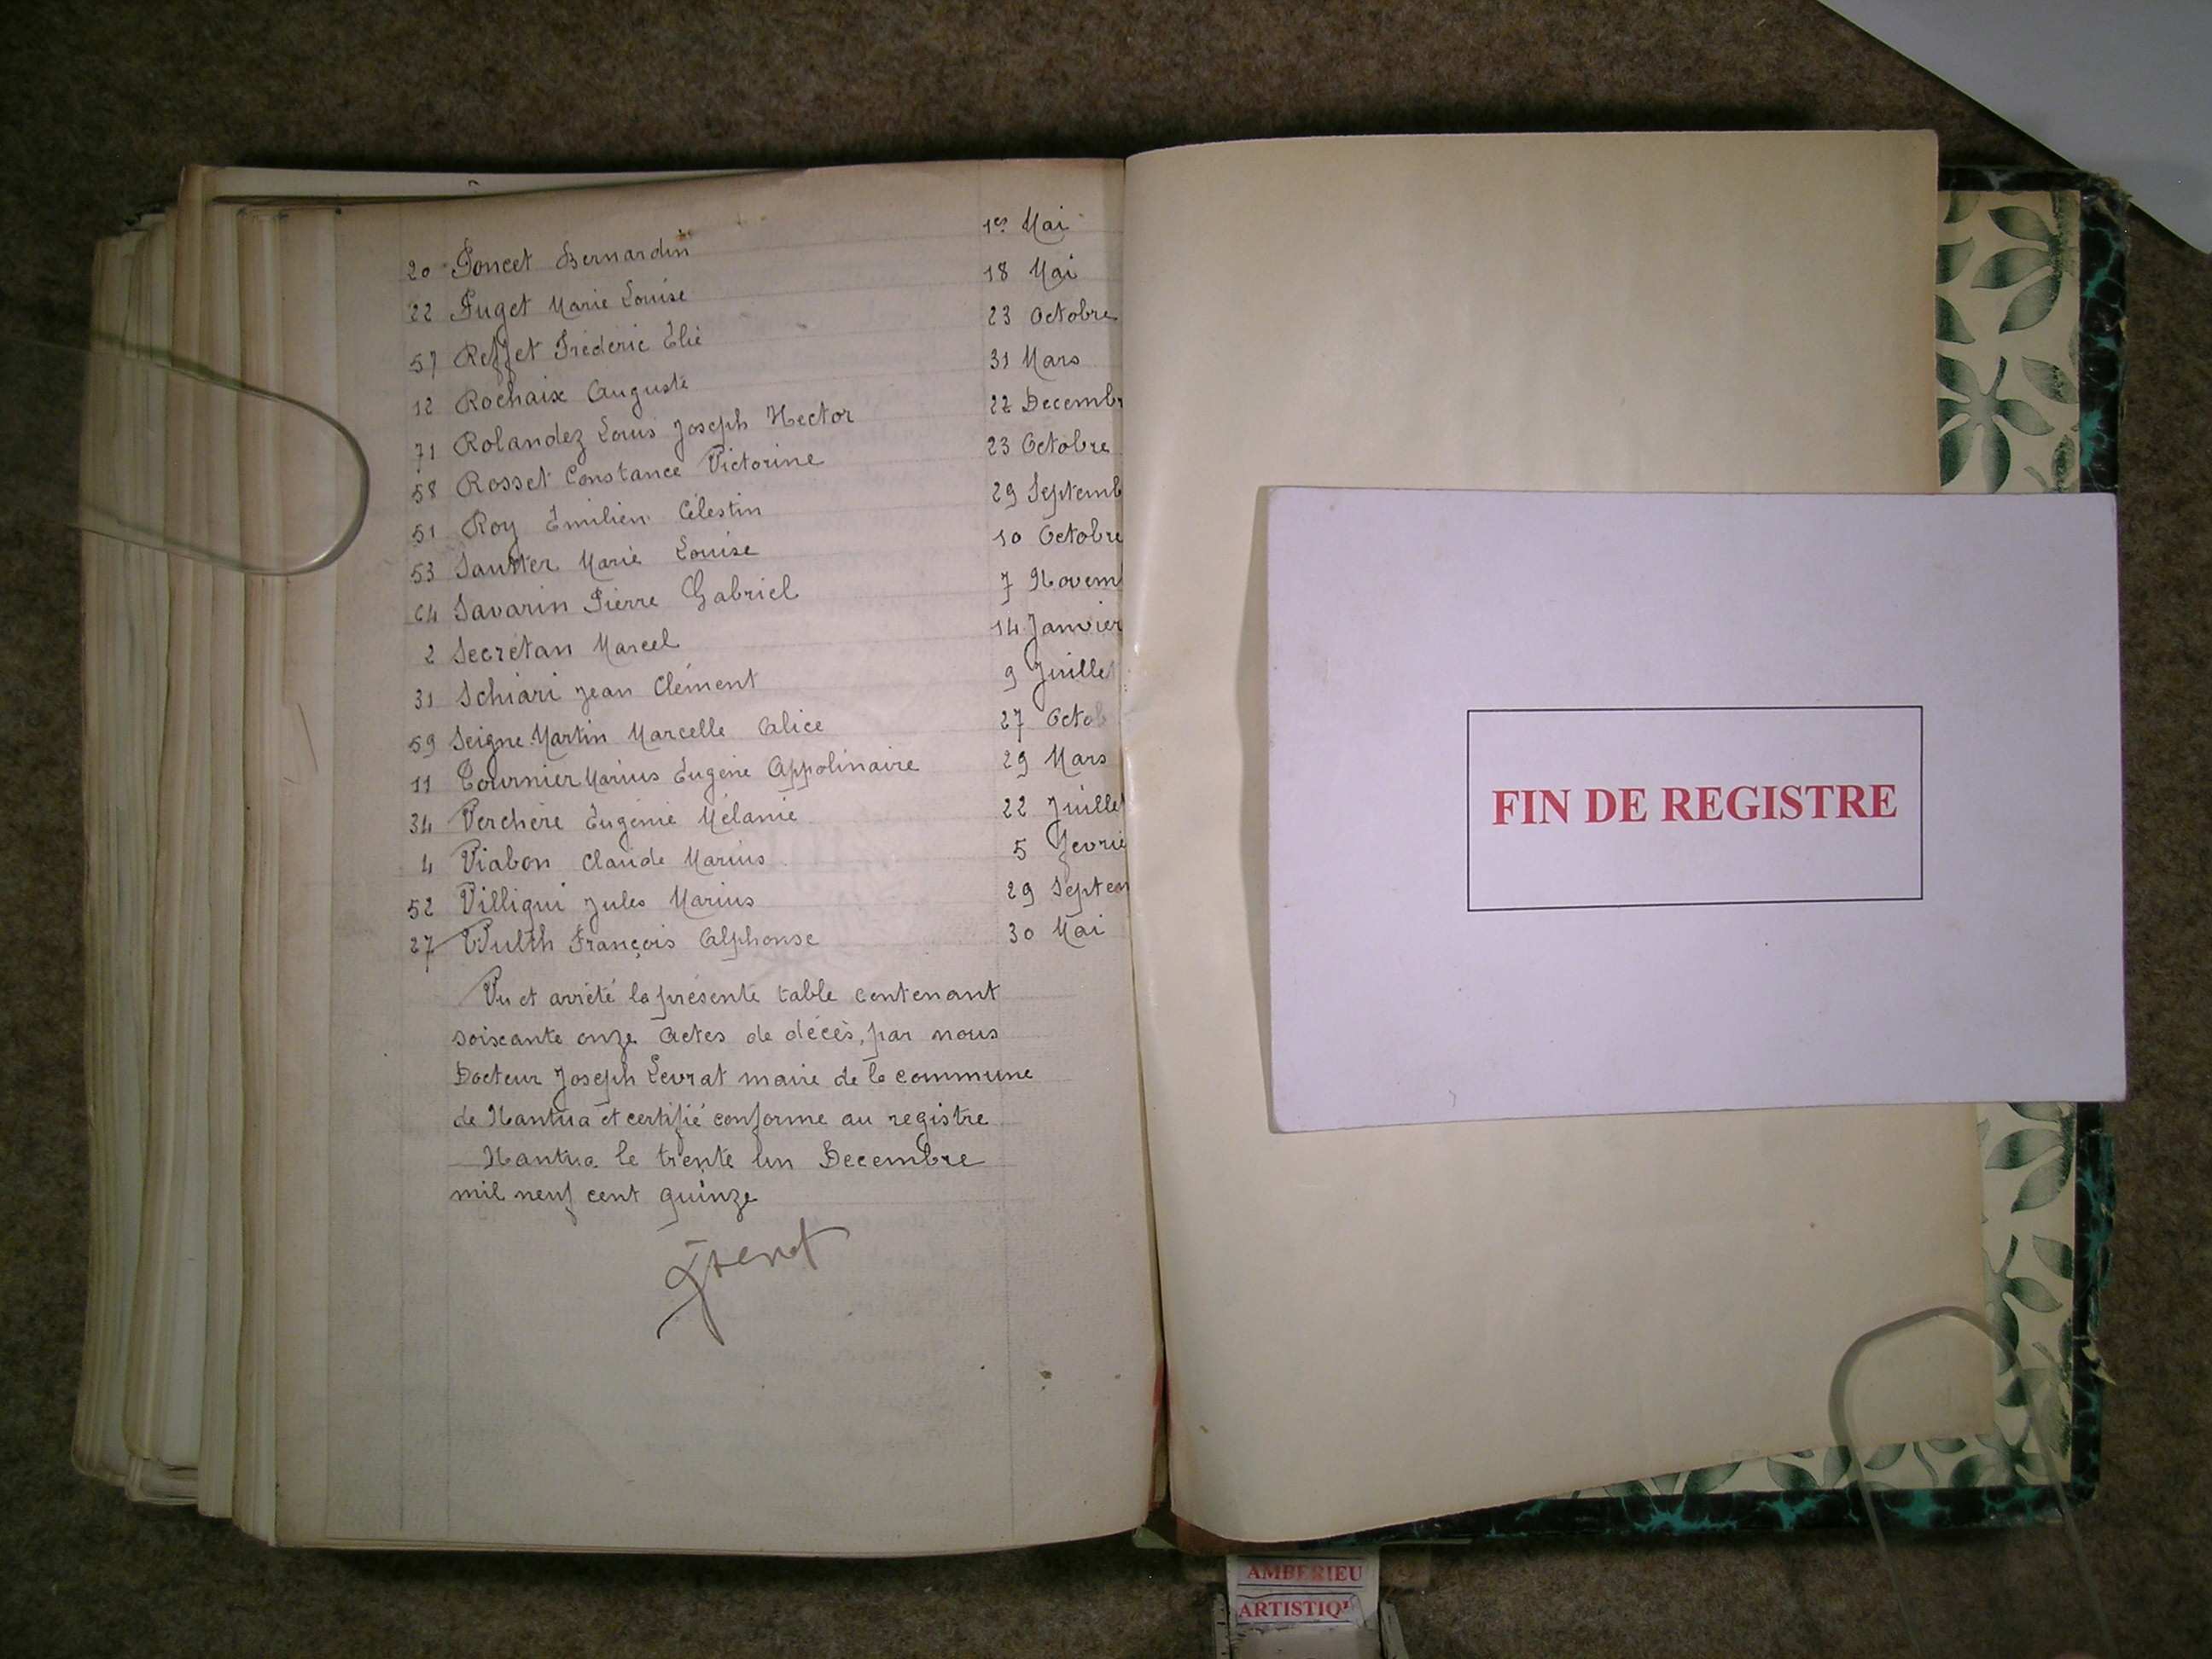 20 Poncet Bernardin 1er Mai
22 Puget Marie Louise 18 Mai
57 Reffet Frédéric Elie 23 Octobre
12 Rochaix Auguste 31 Mars
71 Rolandez Louis Joseph Hector 22 Decembr
58 Rosset Constance Victorine 23 Octobre
51 Roy Emilien Célestin 29 Septemb
53 Sautier Marie Louise 10 Octobre
64 Savarin Pierre Gabriel 7 Novem
2 Secrétan Marcel 14 Janvier
31 Schiari Jean Clément 9 Juillet
59 Seigne Martin Marcelle Alice 27 Octob
11 Tournier Marius Eugène Appolinaire 29 Mars
34 Verchère Eugénie Mélanie 22 Juillet
4 Viabon Claude Marius 5 Fevrie
52 Villiqui Jules Marius 29 Septem
27 Wulth François Alphonse 30 Mai
Vu et arrêté la présente table contenant
soixante onze actes de décès, par nous
Docteur Joseph Levrat maire de la commune
de Nantua et certifié conforme au registre
Nantua le trente un Decembre
mil neuf cent quinze
FIN DE REGISTRE
AMBERIEU
ARTISTIQ